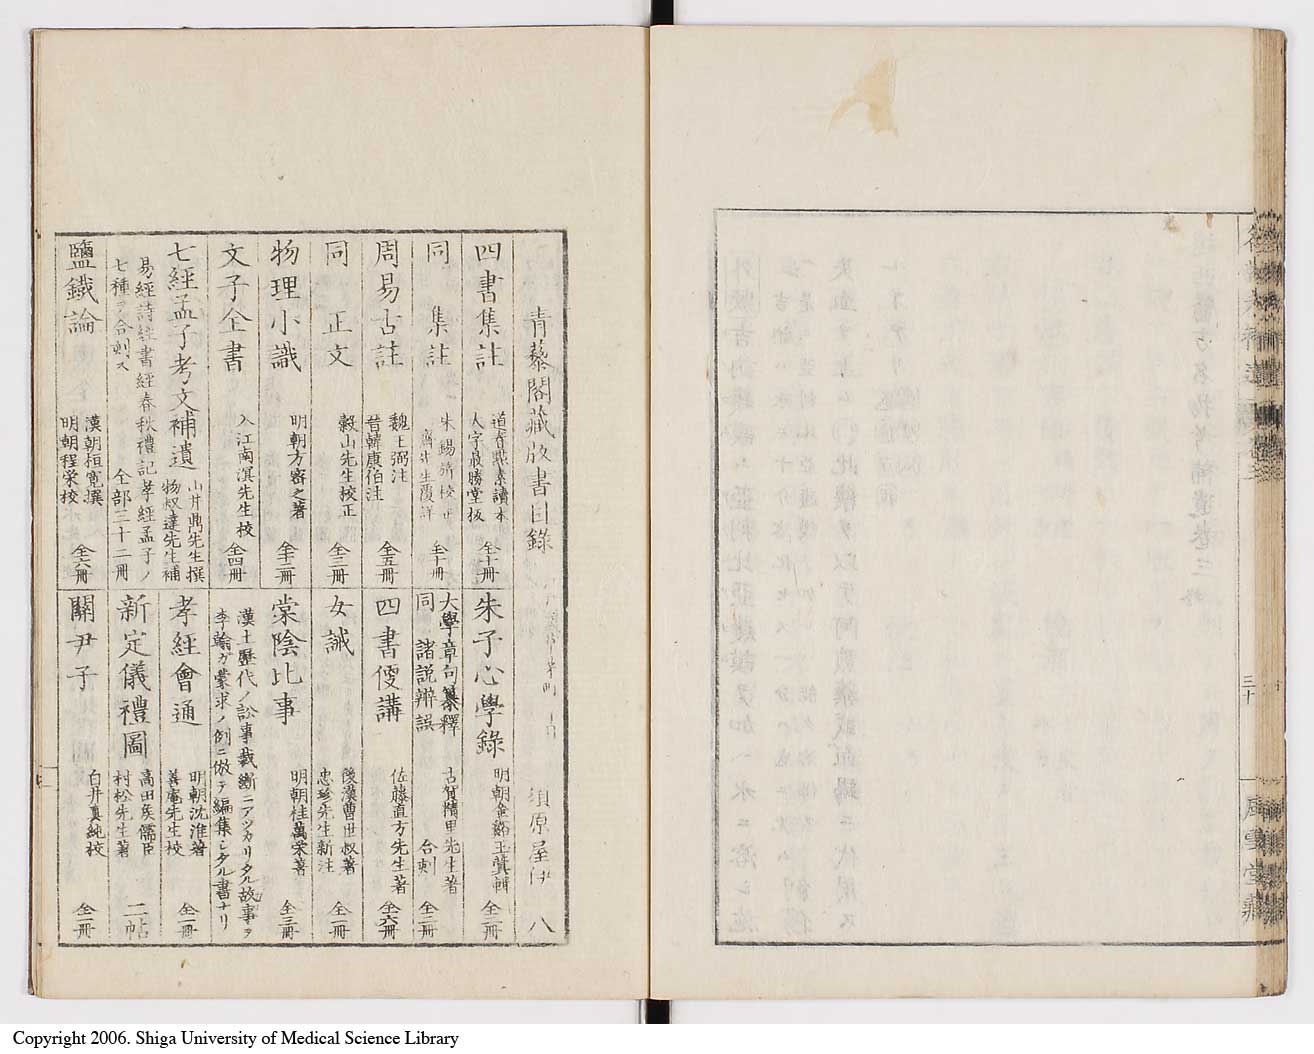 三十
風雲堂藏
青藜閣藏版書目錄
須原屋伊八
四書集註
道春點素讀本
大字最勝堂板
全十冊
同 集註
朱錫旂校正
全十冊
周易古註
魏王弼注
晉韓康伯注
全五冊
同 正文
穀山先生校正
全三冊
物理小識
明朝方密之著
文子全書
入江南溟先生校
全四冊
七經孟子考文補遺
山井鼎先生撰
物叔達先生補
易經詩經書經春秋禮記孝經孟子ノ
七種ヲ合刺ス
全部三十二冊
鹽鐵論
漢朝桓寬撰
明朝程榮校
全六冊
朱子心學錄
明朝金谿王蓂輯
全三冊
大學章句纂釋
同 諸說辨誤
古賀精里先生著
合刺
全二冊
四書便講
佐藤直方先生著
全六冊
女誡
後漢曹世叔著
忠珍先生新注
全一冊
棠陰比事
明朝桂萬榮著
全三冊
漢土歷代ノ訟事裁斷ニアツカリタル故事ヲ
李翰ガ蒙求ノ例ニ倣テ編集シタル書ナリ
孝經會通
明朝沈淮著
善庵先生校
全一冊
新定儀禮圖
高田侯儒臣
村松先生著
二帖
關尹子
白井真純校
全一冊
Copyright 2006. Shiga University of Medical Science Library